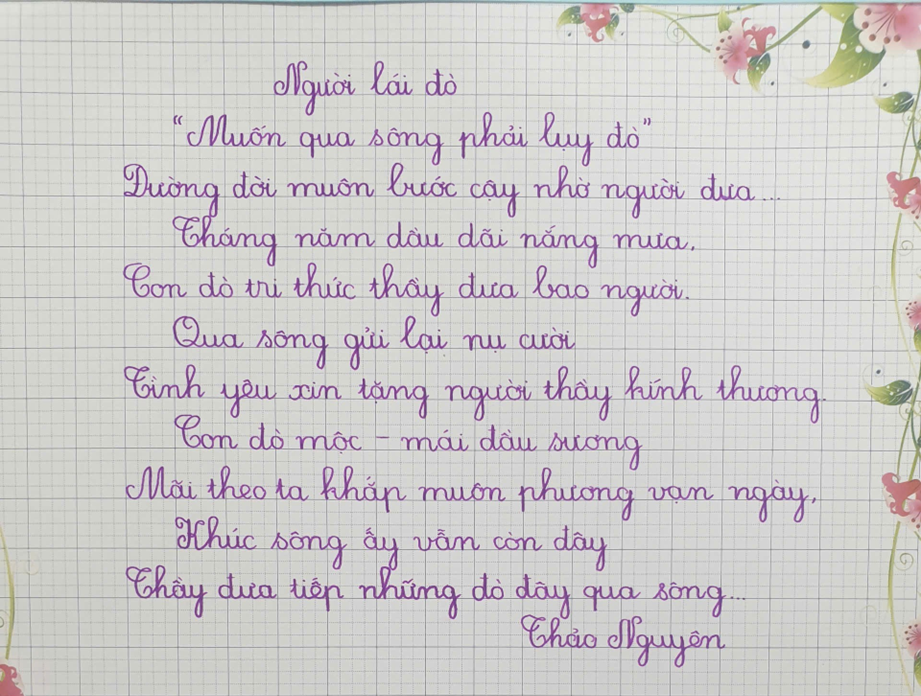 Người lái đò
“Muốn qua sông phải lụy đò”
Đường đời muôn bước cậy nhờ người đưa...
Tháng năm dầu dãi nắng mưa,
Con đò tri thức thầy đưa bao người.
Qua sông gửi lại nụ cười
Tình yêu xin tặng người thầy kính thương.
Con đò mộc – mái đầu sương
Mãi theo ta khắp muôn phương vạn ngày,
Khúc sông ấy vẫn còn đây
Thầy đưa tiếp những đò đầy qua sông...
Thảo Nguyên